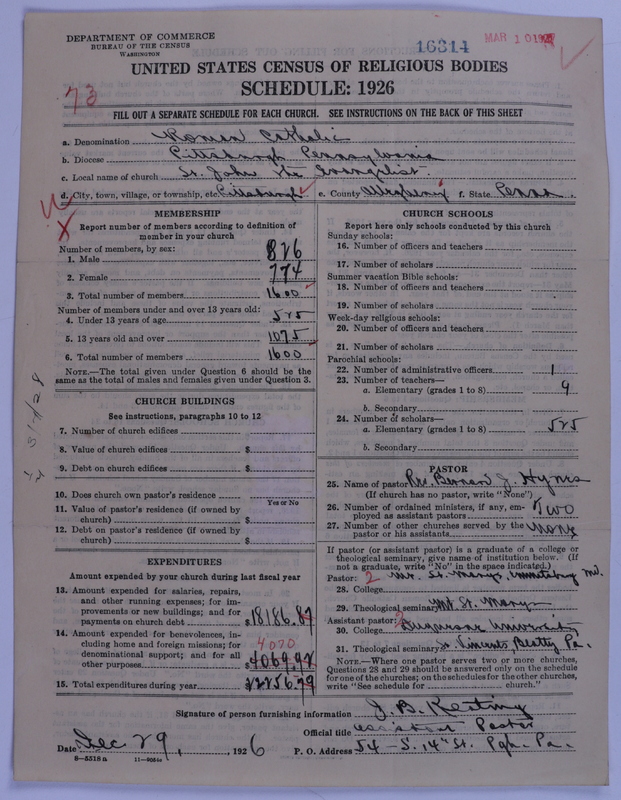 DEPARTMENT OF COMMERCE
BUREAU OF THE CENSUS
WASHINGTON
16314
MAR 10 1927
UNITED STATES CENSUS OF RELIGIOUS BODIES
SCHEDULE: 1926
73
FILL OUT A SEPARATE SCHEDULE FOR EACH CHURCH. SEE INSTRUCTIONS ON THE BACK OF THIS SHEET
a. Denomination Roman Catholic
b. Diocese Pittsburgh Pennsylvania
c. Local name of church St. John the Evangelist.
d. City, town, village, or township, etc. Pittsburgh e. County Allegheny f. State Penna.
MEMBERSHIP
Report number of members according to definition of
member in your church
Number of members, by sex:
1. Male 826
2. Female 774
3. Total number of members 1600
Number of members under and over 13 years old:
4. Under 13 years of age 525
5. 13 years old and over 1075
6. Total number of members 1600
NOTE.—The total given under Question 6 should be the
same as the total of males and females given under Question 3.
CHURCH BUILDINGS
See instructions, paragraphs 10 to 12
7. Number of church edifices
8. Value of church edifices $
9. Debt on church edifices $
10. Does church own pastor's residence
Yes or No
11. Value of pastor's residence (if owned by
church) $
12. Debt on pastor's residence (if owned by
church) $
EXPENDITURES
Amount expended by your church during last fiscal year
13. Amount expended for salaries, repairs,
and other running expenses; for im-
provements or new buildings; and for
payments on church debt $18186.87
14. Amount expended for benevolences, in-
cluding home and foreign missions; for
denominational support; and for all
other purposes 4070 4069.92
15. Total expenditures during year $22256.79
CHURCH SCHOOLS
Report here only schools conducted by this church
Sunday schools:
16. Number of officers and teachers
17. Number of scholars
Summer vacation Bible schools:
18. Number of officers and teachers
19. Number of scholars
Week-day religious schools:
20. Number of officers and teachers
21. Number of scholars
Parochial schools:
22. Number of administrative officers 1
23. Number of teachers—
a. Elementary (grades 1 to 8) 9
b. Secondary
24. Number of scholars—
a. Elementary (grades 1 to 8) 525
b. Secondary
PASTOR
25. Name of pastor Rev. Bernard J. Hynes
(If church has no pastor, write "None")
26. Number of ordained ministers, if any, em-
ployed as assistant pastors Two
27. Number of other churches served by the
pastor or his assistants None
If pastor (or assistant pastor) is a graduate of a college or
theological seminary, give name of institution below. (If
not a graduate, write "No" in the space indicated.)
Pastor: 2 Mt. St. Marys, Emmitsburg Md.
28. College
29. Theological seminary Mt St. Marys
Assistant pastor: 2
30. College Duquesne University
31. Theological seminary St. Vincents, Beatty Pa.
NOTE.—Where one pastor serves two or more churches,
Questions 28 and 29 should be answered only on the schedule
for one of the churches; on the schedules for the other churches,
write "See schedule for church."
Signature of person furnishing information J. B. Keating
Official title Assistant Pastor
Date Dec 29, 1926 P. O. Address 54 - S. 14th St. Pgh. Pa.
8—5518 a 11—9054c